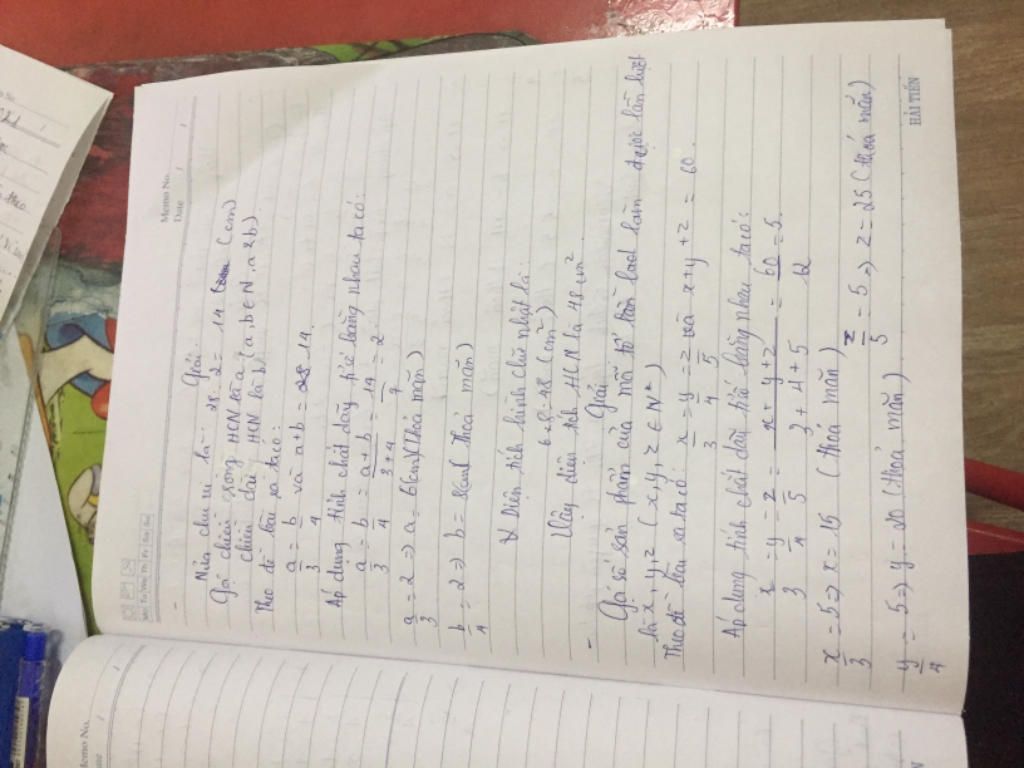 Memo No.
Date
Mo Tu We Th Fr Sa Su
Giải:
Nửa chu vi là: 28 : 2 = 14 (cm)
Gọi chiều rộng HCN là a
chiều dài HCN là b (a, b ∈ N, a < b).
Theo đề bài ra ta có:
a/3 = b/4 và a+b = 14.
Áp dụng tính chất dãy tỉ số bằng nhau ta có:
a/3 = b/4 = a+b/3+4 = 14/7 = 2.
a/3 = 2 => a = 6(cm)(Thoả mãn)
b/4 = 2 => b = 8(cm)( Thoả mãn)
Diện tích hình chữ nhật là:
6.8 = 48 (cm²)
Vậy diện tích HCN là 48 cm²
- Giải
Gọi số sản phẩm của mỗi tổ lao động làm được lần lượt
là x, y, z ( x, y, z ∈ N*)
Theo đề bài ra ta có: x/3 = y/4 = z/5 và x+y+z = 60.
Áp dụng tính chất dãy tỉ số bằng nhau ta có:
x/3 = y/4 = z/5 = x+y+z/3+4+5 = 60/12 = 5.
x/3 = 5 => x = 15 (thoả mãn)
z/5 = 5 => z = 25 (thoả mãn)
y/4 = 5 => y = 20 (thoả mãn)
HẢI TIẾN
Memo No.
Date